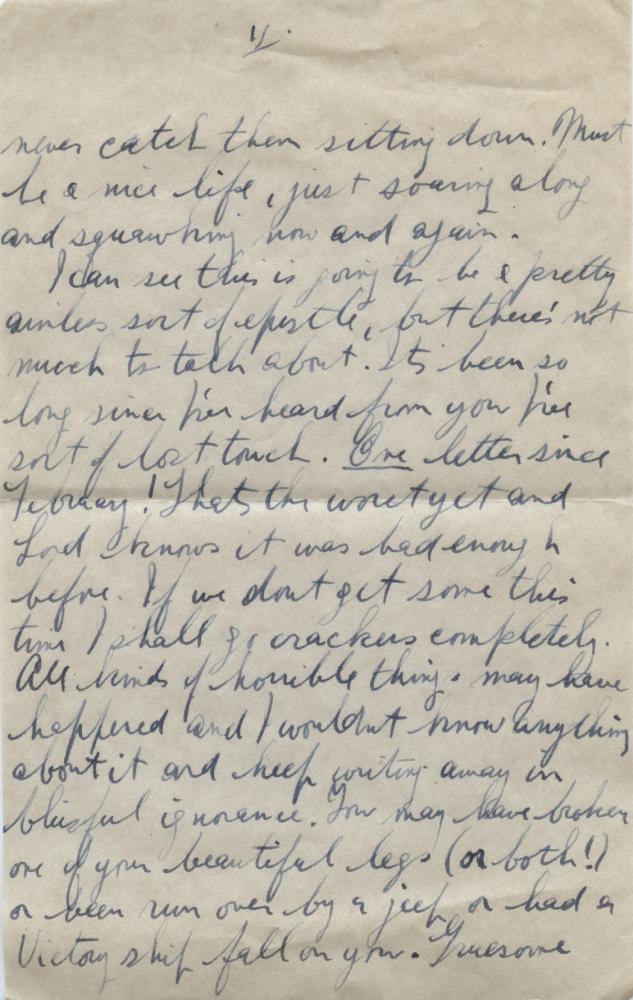 11.
never catch them sitting down. Must
be a nice life, just soaring along
and squawking now and again.
I can see this is going to be a pretty
aimless sort of epistle, but there's not
much to talk about. Its been so
long since I've heard from you I've
sort of lost touch. One letter since
February! Thats the worst yet and
Lord knows it was bad enough
before. If we dont get some this
time I shall go crackers completely.
All kinds of horrible things may have
happened and I wouldnt know anything
about it and keep writing away in
blissful ignorance. You may have broken
one of your beautiful legs (or both!)
or been run over by a jeep or had a
Victory ship fall on you. Gruesome